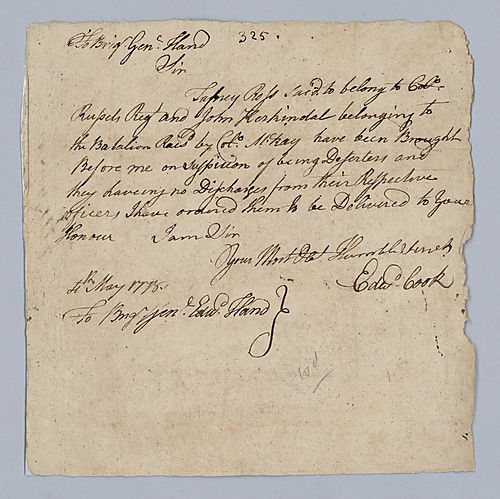 To Brigr Genl. Hand 325.
Sir
Ross Said to belong to Colo.
Russels Regt and John belonging to
the Batalion Raisd by Colo. McKay have been Brought
Before me on Suspition of being Deserters and
they haveing no Discharges from their Respective
officers I have ordered them to be Delivered to Your
Honour I am Sir
Your Most Obt Humble Servt
Edwd. Cook
4th May 1778.
To Brigr Genl. Edwd. Hand